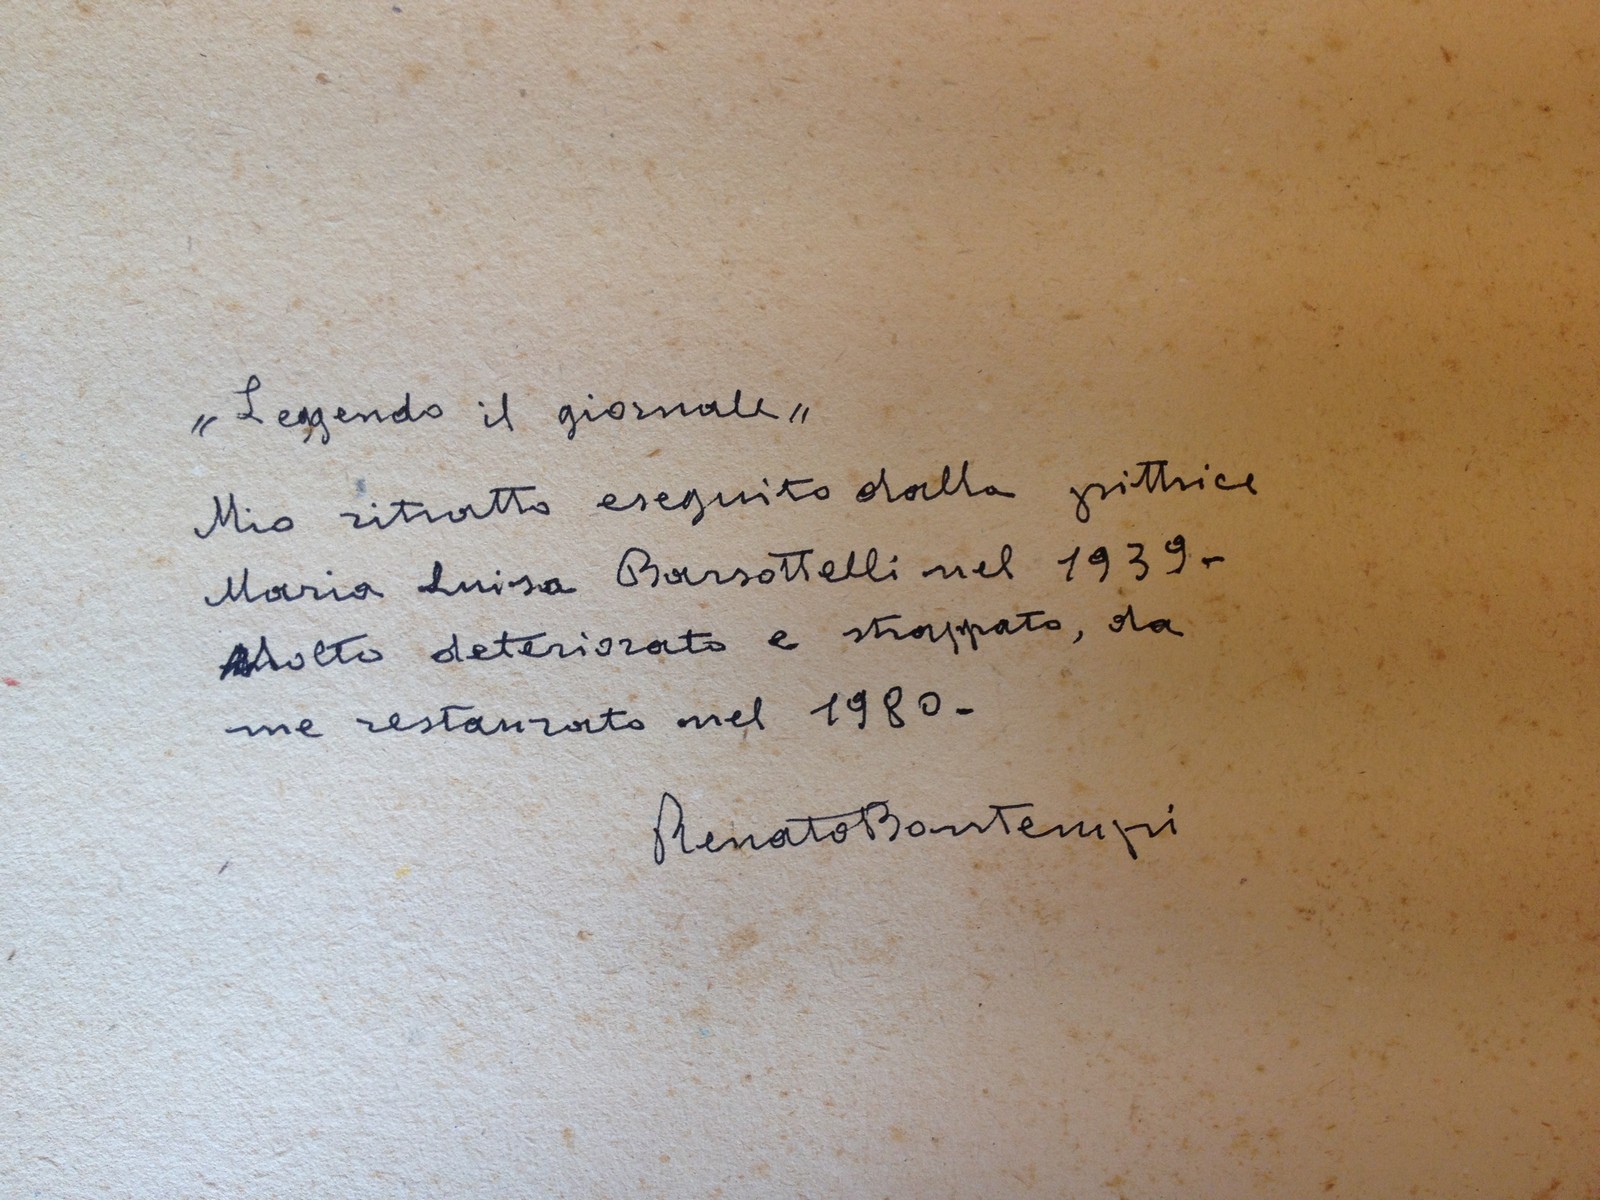 „Leggendo il giornale„
Mio ritratto eseguito dalla pittrice
Maria Luisa Barsottelli nel 1939-
Molto deteriorato e strappato, da
me restaurato nel 1980-
Renato Bontempi